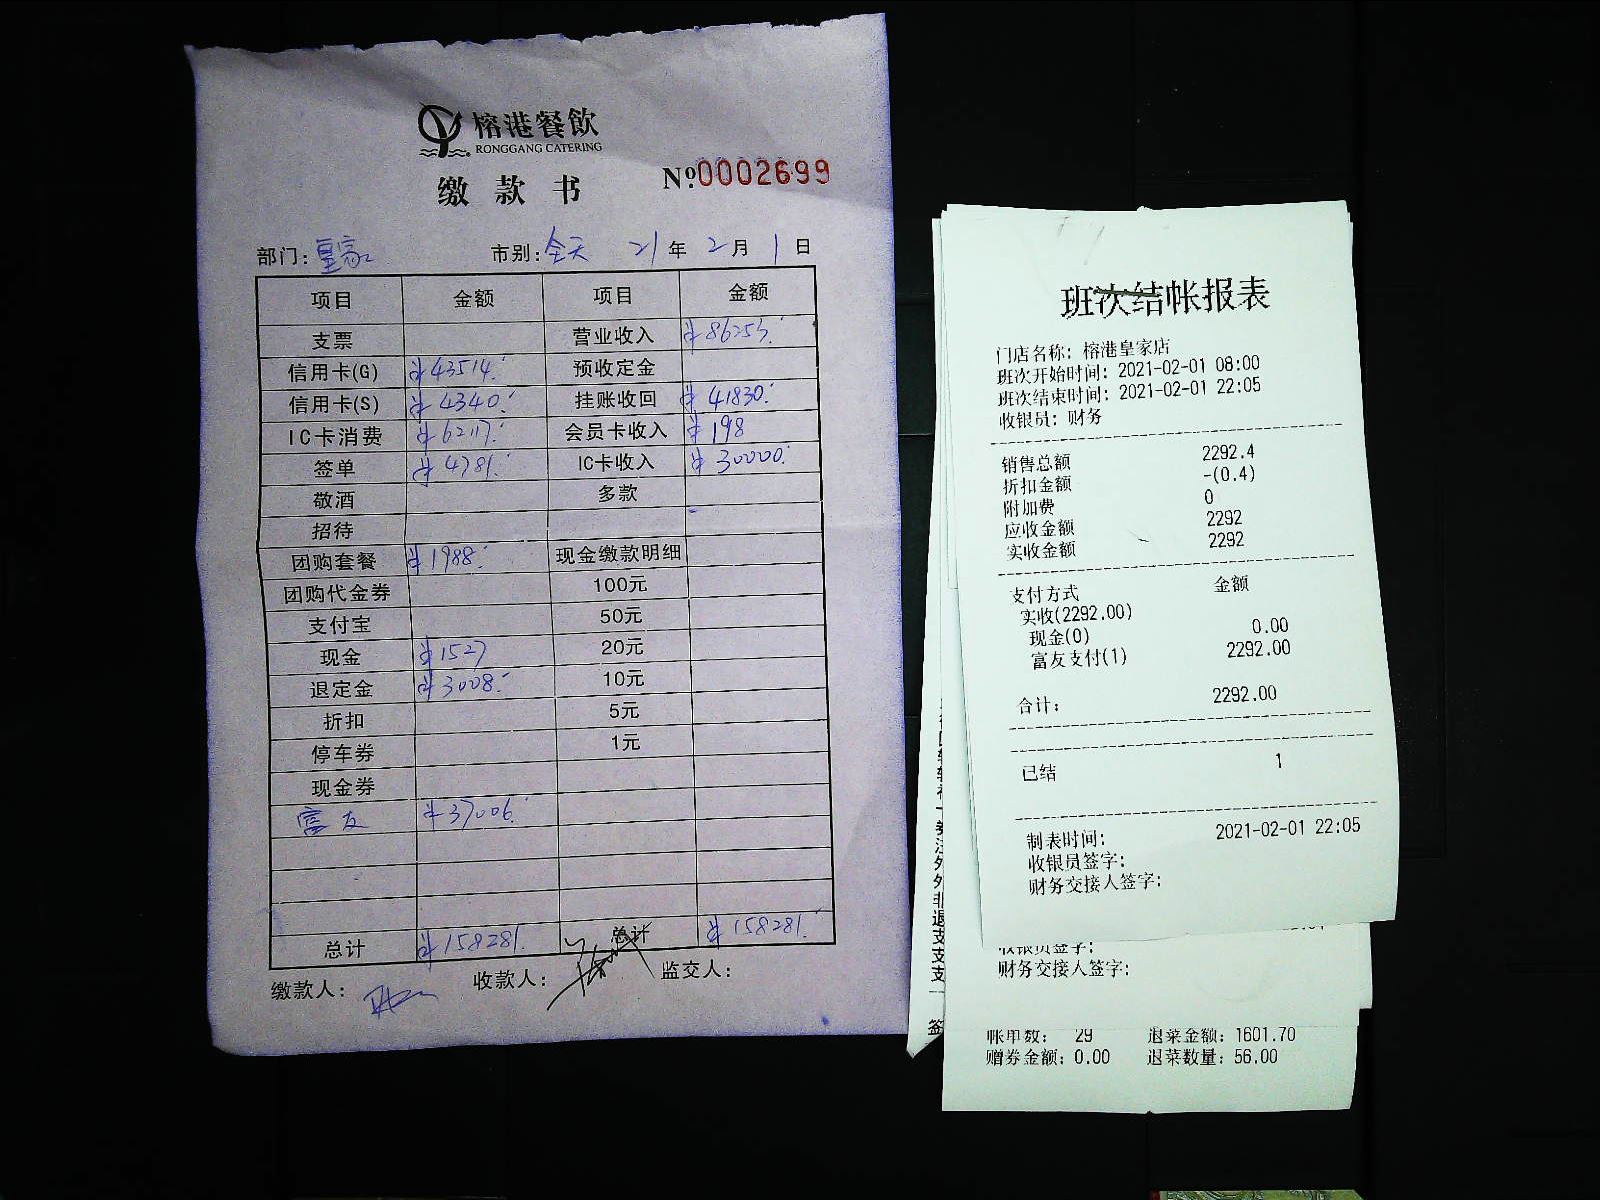 榕港餐飲
RONGGANG CATERING
缴款书
Nº0002699
部门:皇家 市别:全天 21年2月1日
项目 金额 项目 金额
支票 营业收入 ¥86253.
信用卡(G) ¥43514. 预收定金
信用卡(S) ¥4340. 挂账收回 ¥41830.
IC卡消费 ¥62117. 会员卡收入 ¥198
签单 ¥4781. IC卡收入 ¥30000.
敬酒 多款
招待
团购套餐 ¥1988. 现金缴款明细
团购代金券 100元
支付宝 50元
现金 ¥1527 20元
退定金 ¥3008. 10元
折扣 5元
停车券 1元
现金券
富友 ¥37006.
总计 ¥158281. 总计 ¥158281.
缴款人: 收款人: 监交人:
班次结帐报表
门店名称: 榕港皇家店
班次开始时间: 2021-02-01 08:00
班次结束时间: 2021-02-01 22:05
收银员: 财务
销售总额 2292.4
折扣金额 -(0.4)
附加费 0
应收金额 2292
实收金额 2292
支付方式 金额
实收(2292.00)
现金(0) 0.00
富友支付(1) 2292.00
合计: 2292.00
已结 1
制表时间: 2021-02-01 22:05
收银员签字:
财务交接人签字:
收银员签字:
财务交接人签字:
帐单数: 29 退菜金额: 1601.70
赠券金额: 0.00 退菜数量: 56.00